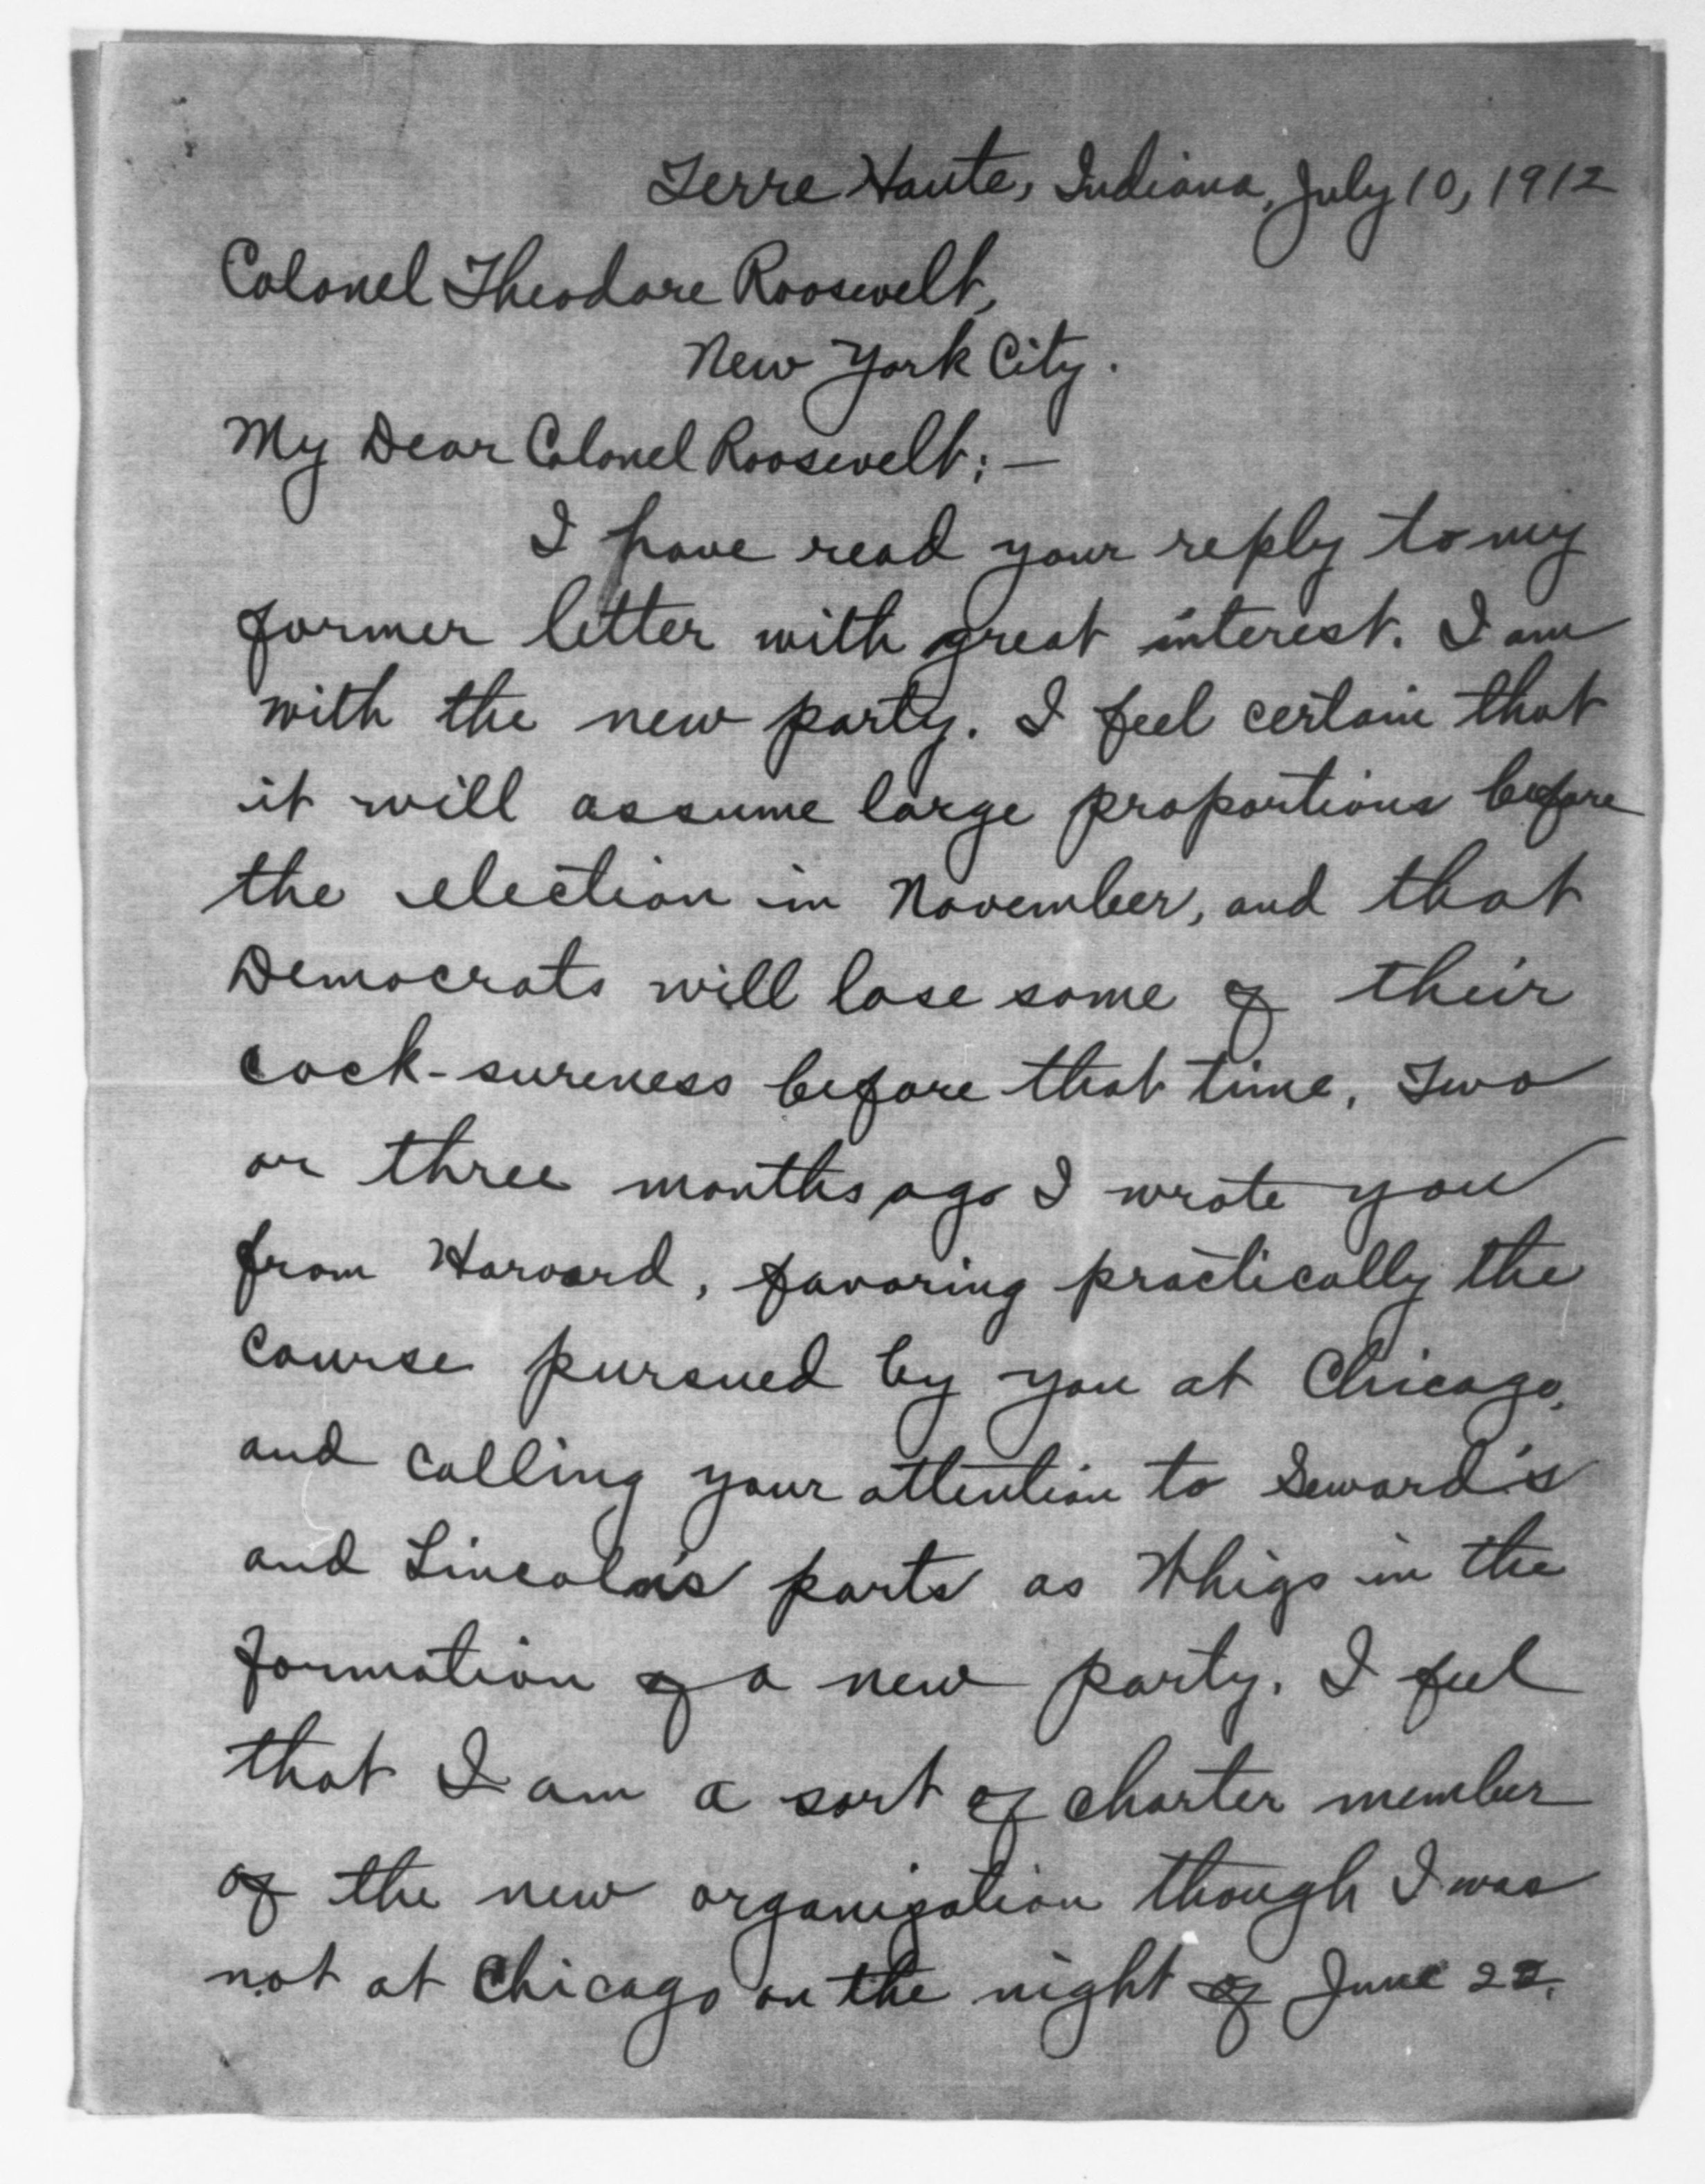 Terre Haute, Indiana, July 10, 1912
Colonel Theodore Roosevelt,
New York City.
My Dear Colonel Roosevelt; —
I have read your reply to my
former letter with great interest. I am
with the new party. I feel certain that
it will assume large proportions before
the election in November, and that
Democrats will lose some of their
cock-sureness before that time. Two
or three months ago I wrote you
from Harvard, favoring practically the
course pursued by you at Chicago,
and calling your attention to Seward's
and Lincoln's parts as Whigs in the
formation of a new party. I feel
that I am a sort of charter member
of the new organization though I was
not at Chicago on the night of June 22.